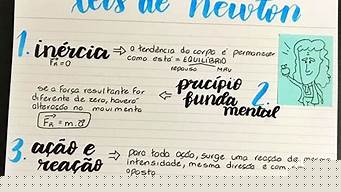 leis de Newton
1. inércia → a tendência do corpo é permanecer
como está = EQUILÍBRIO
FR=0
repouso MRU
se a força resultante for
diferente de zero, haverá
alteração no movimento
FR = m.a
← pricípio
funda
mental
2.
3. ação e
reação → para toda ação, surge uma reação de mesma
intensidade, mesma direção e
oposto